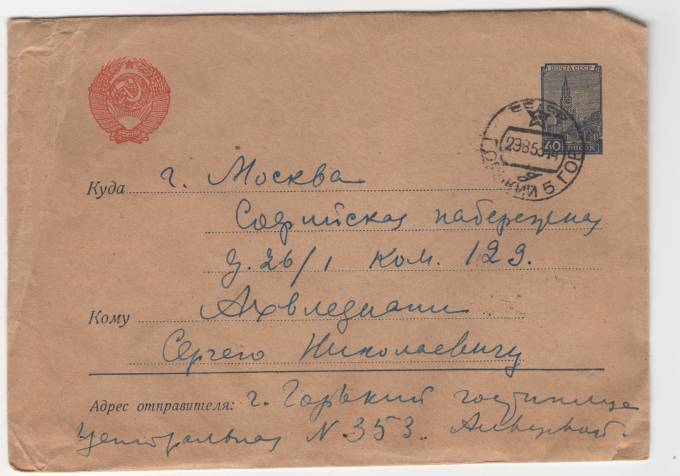 ПОЧТА СССР
40 КОПЕЕК
29 8 53 14
Куда г. Москва
Софийская набережная
д. 26/1 ком. 129.
Кому Ахвледиани
Сергею Николаевичу
Адрес отправителя: г. Горький гостиница
Центральная N. 353.